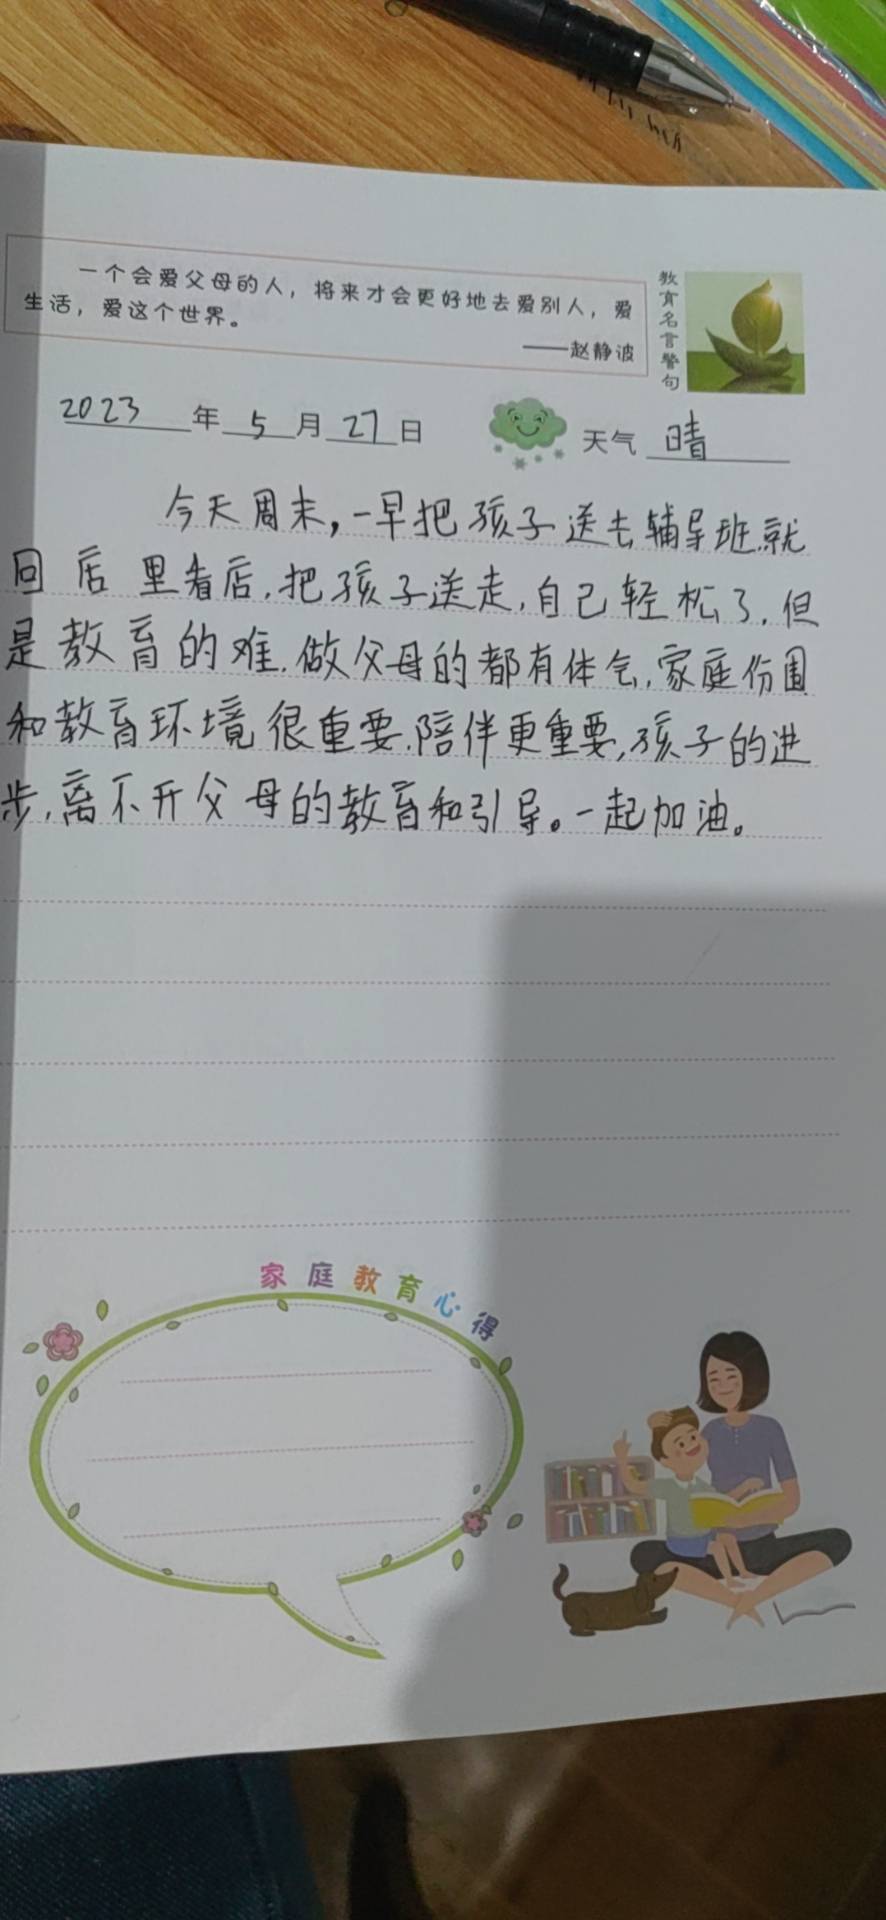 一个会爱父母的人，将来才会更好地去爱别人，爱
生活，爱这个世界。
——赵静波
教育名言警句
2023年5月27日
天气 晴
今天周末，一早把孩子送去辅导班.就
回店里看店,把孩子送走,自己轻松了,但
是教育的难,做父母的都有体会,家庭份围
和教育环境很重要.陪伴更重要,孩子的进
步,离不开父母的教育和引导。一起加油。
家庭教育心得